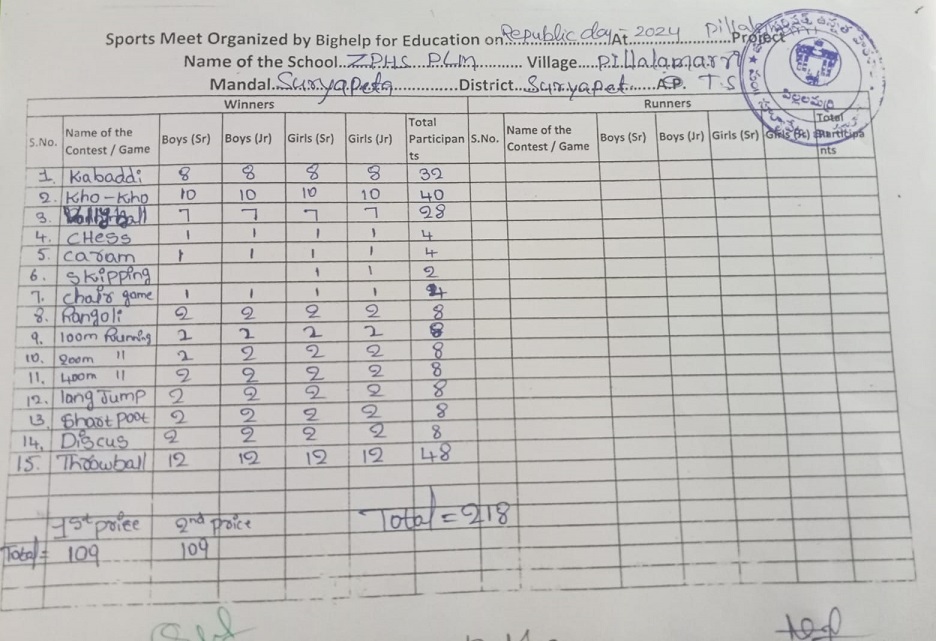 Sports Meet Organized by Bighelp for Education on Republic day At - 2024 Pillala Project
Name of the School ZPHS PLM Village Pillalamarri
Mandal Suryapeta District Suryapet A.P. T.S
Winners Runners
S.No. Name of the Contest / Game Boys (Sr) Boys (Jr) Girls (Sr) Girls (Jr) Total Participants S.No. Name of the Contest / Game Boys (Sr) Boys (Jr) Girls (Sr) Total Participants
1. Kabaddi 8 8 8 8 32
2. Kho-Kho 10 10 10 10 40
3. 7 7 7 7 28
4. CHess 1 1 1 1 4
5. Caram 1 1 1 1 4
6. Skipping 1 1 2
7. Chair game 1 1 1 1 4
8. Rangoli 2 2 2 2 8
9. 100m Running 2 2 2 2 8
10. 200m " 2 2 2 2 8
11. 400m " 2 2 2 2 8
12. long Jump 2 2 2 2 8
13. Shart poot 2 2 2 2 8
14. Discus 2 2 2 2 8
15. Throwball 12 12 12 12 48
1st price 2nd price Total = 218
Total = 109 109